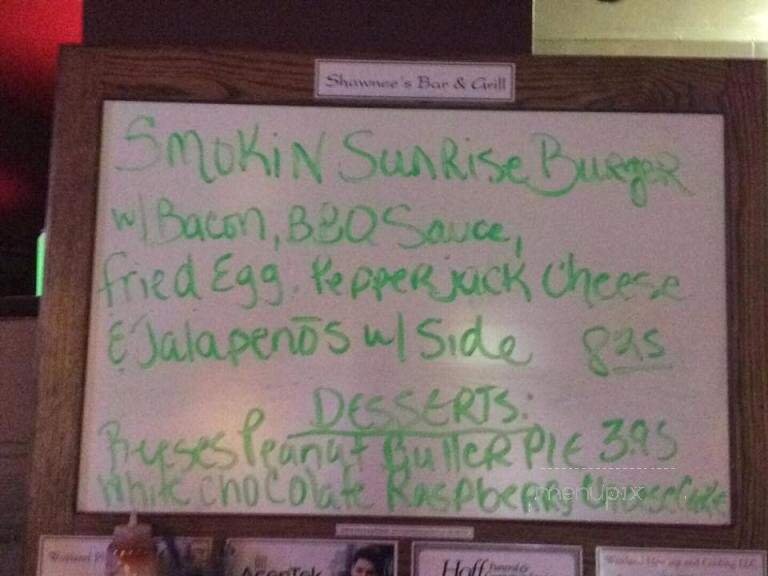 Shawnee's Bar & Grill
Smokin Sunrise Burger
w/ Bacon, BBQ Sauce,
fried Egg. Pepperjack Cheese
& Jalapenos w/ Side 8.25
DESSERTS:
Reeses Peanut Butter PIE 3.95
White chocolate Raspberry Cheesecake
menupix
AcenTek
Hoff